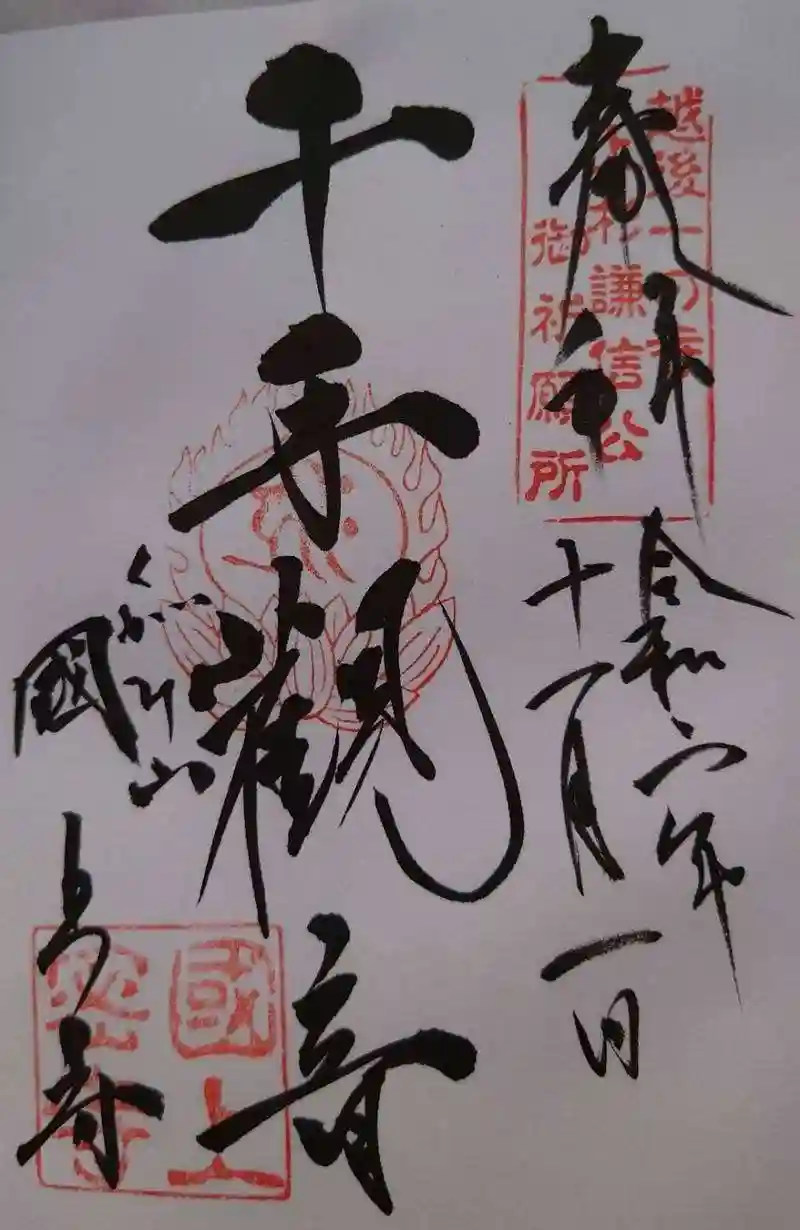 奉拝
越後一乃寺
上杉謙信公
御祈願所
令和六年
十一月一日
千手觀音
くがみ山
國上寺
國上
密寺